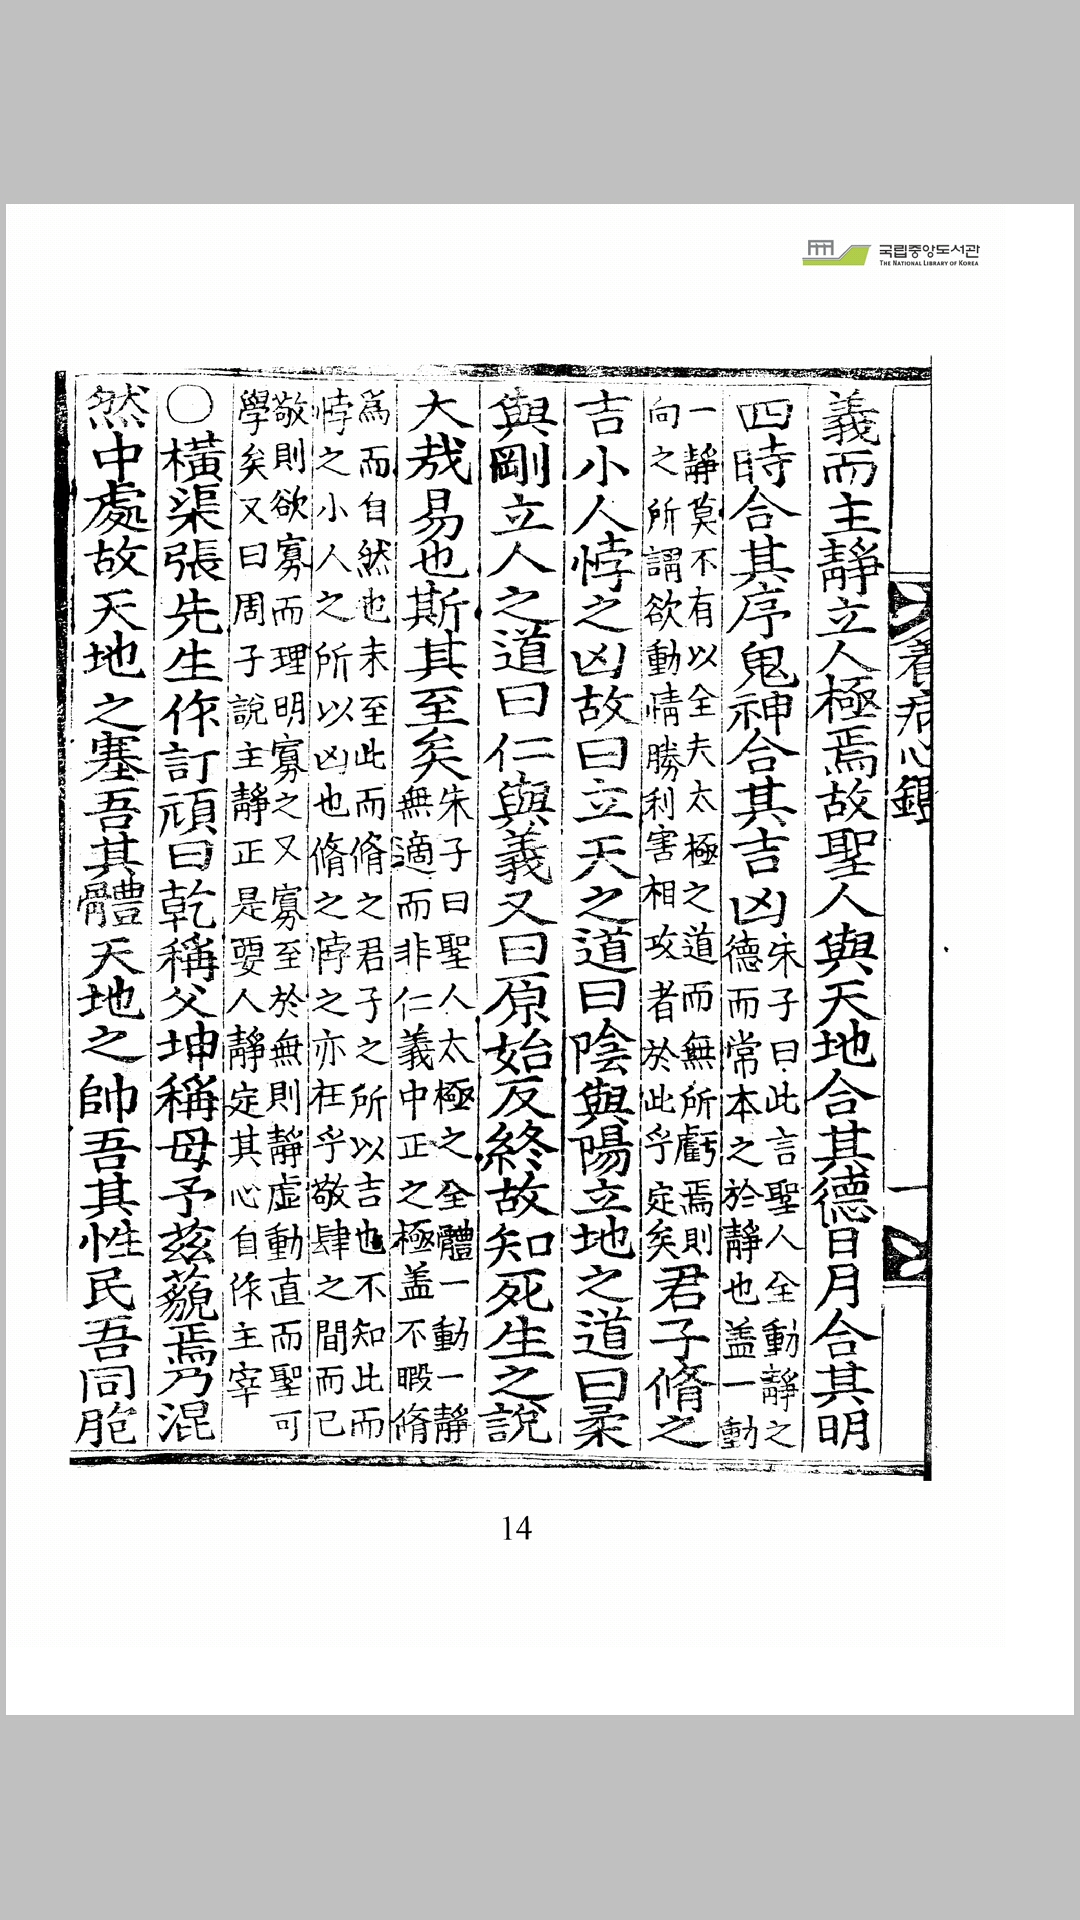 국립중앙도서관
THE NATIONAL LIBRARY OF KOREA
養病心鑑 一
義而主靜立人極焉故聖人與天地合其德日月合其明
四時合其序鬼神合其吉凶
朱子曰此言聖人全動靜之
德而常本之於靜也盖一動
一靜莫不有以全夫太極之道而無所虧焉則
向之所謂欲動情勝利害相攻者於此乎定矣
君子脩之
吉小人悖之凶故曰立天之道曰陰與陽立地之道曰柔
與剛立人之道曰仁與義又曰原始反終故知死生之說
大哉易也斯其至矣
朱子曰聖人太極之全體一動一靜
無適而非仁義中正之極盖不暇脩
爲而自然也未至此而脩之君子之所以吉也不知此而
悖之小人之所以凶也脩之悖之亦在乎敬肆之間而已
敬則欲寡而理明寡之又寡至於無則靜虛動直而聖可
學矣又曰周子說主靜正是要人靜定其心自作主宰
○橫渠張先生作訂頑曰乾稱父坤稱母予茲藐焉乃混
然中處故天地之塞吾其體天地之帥吾其性民吾同胞
14